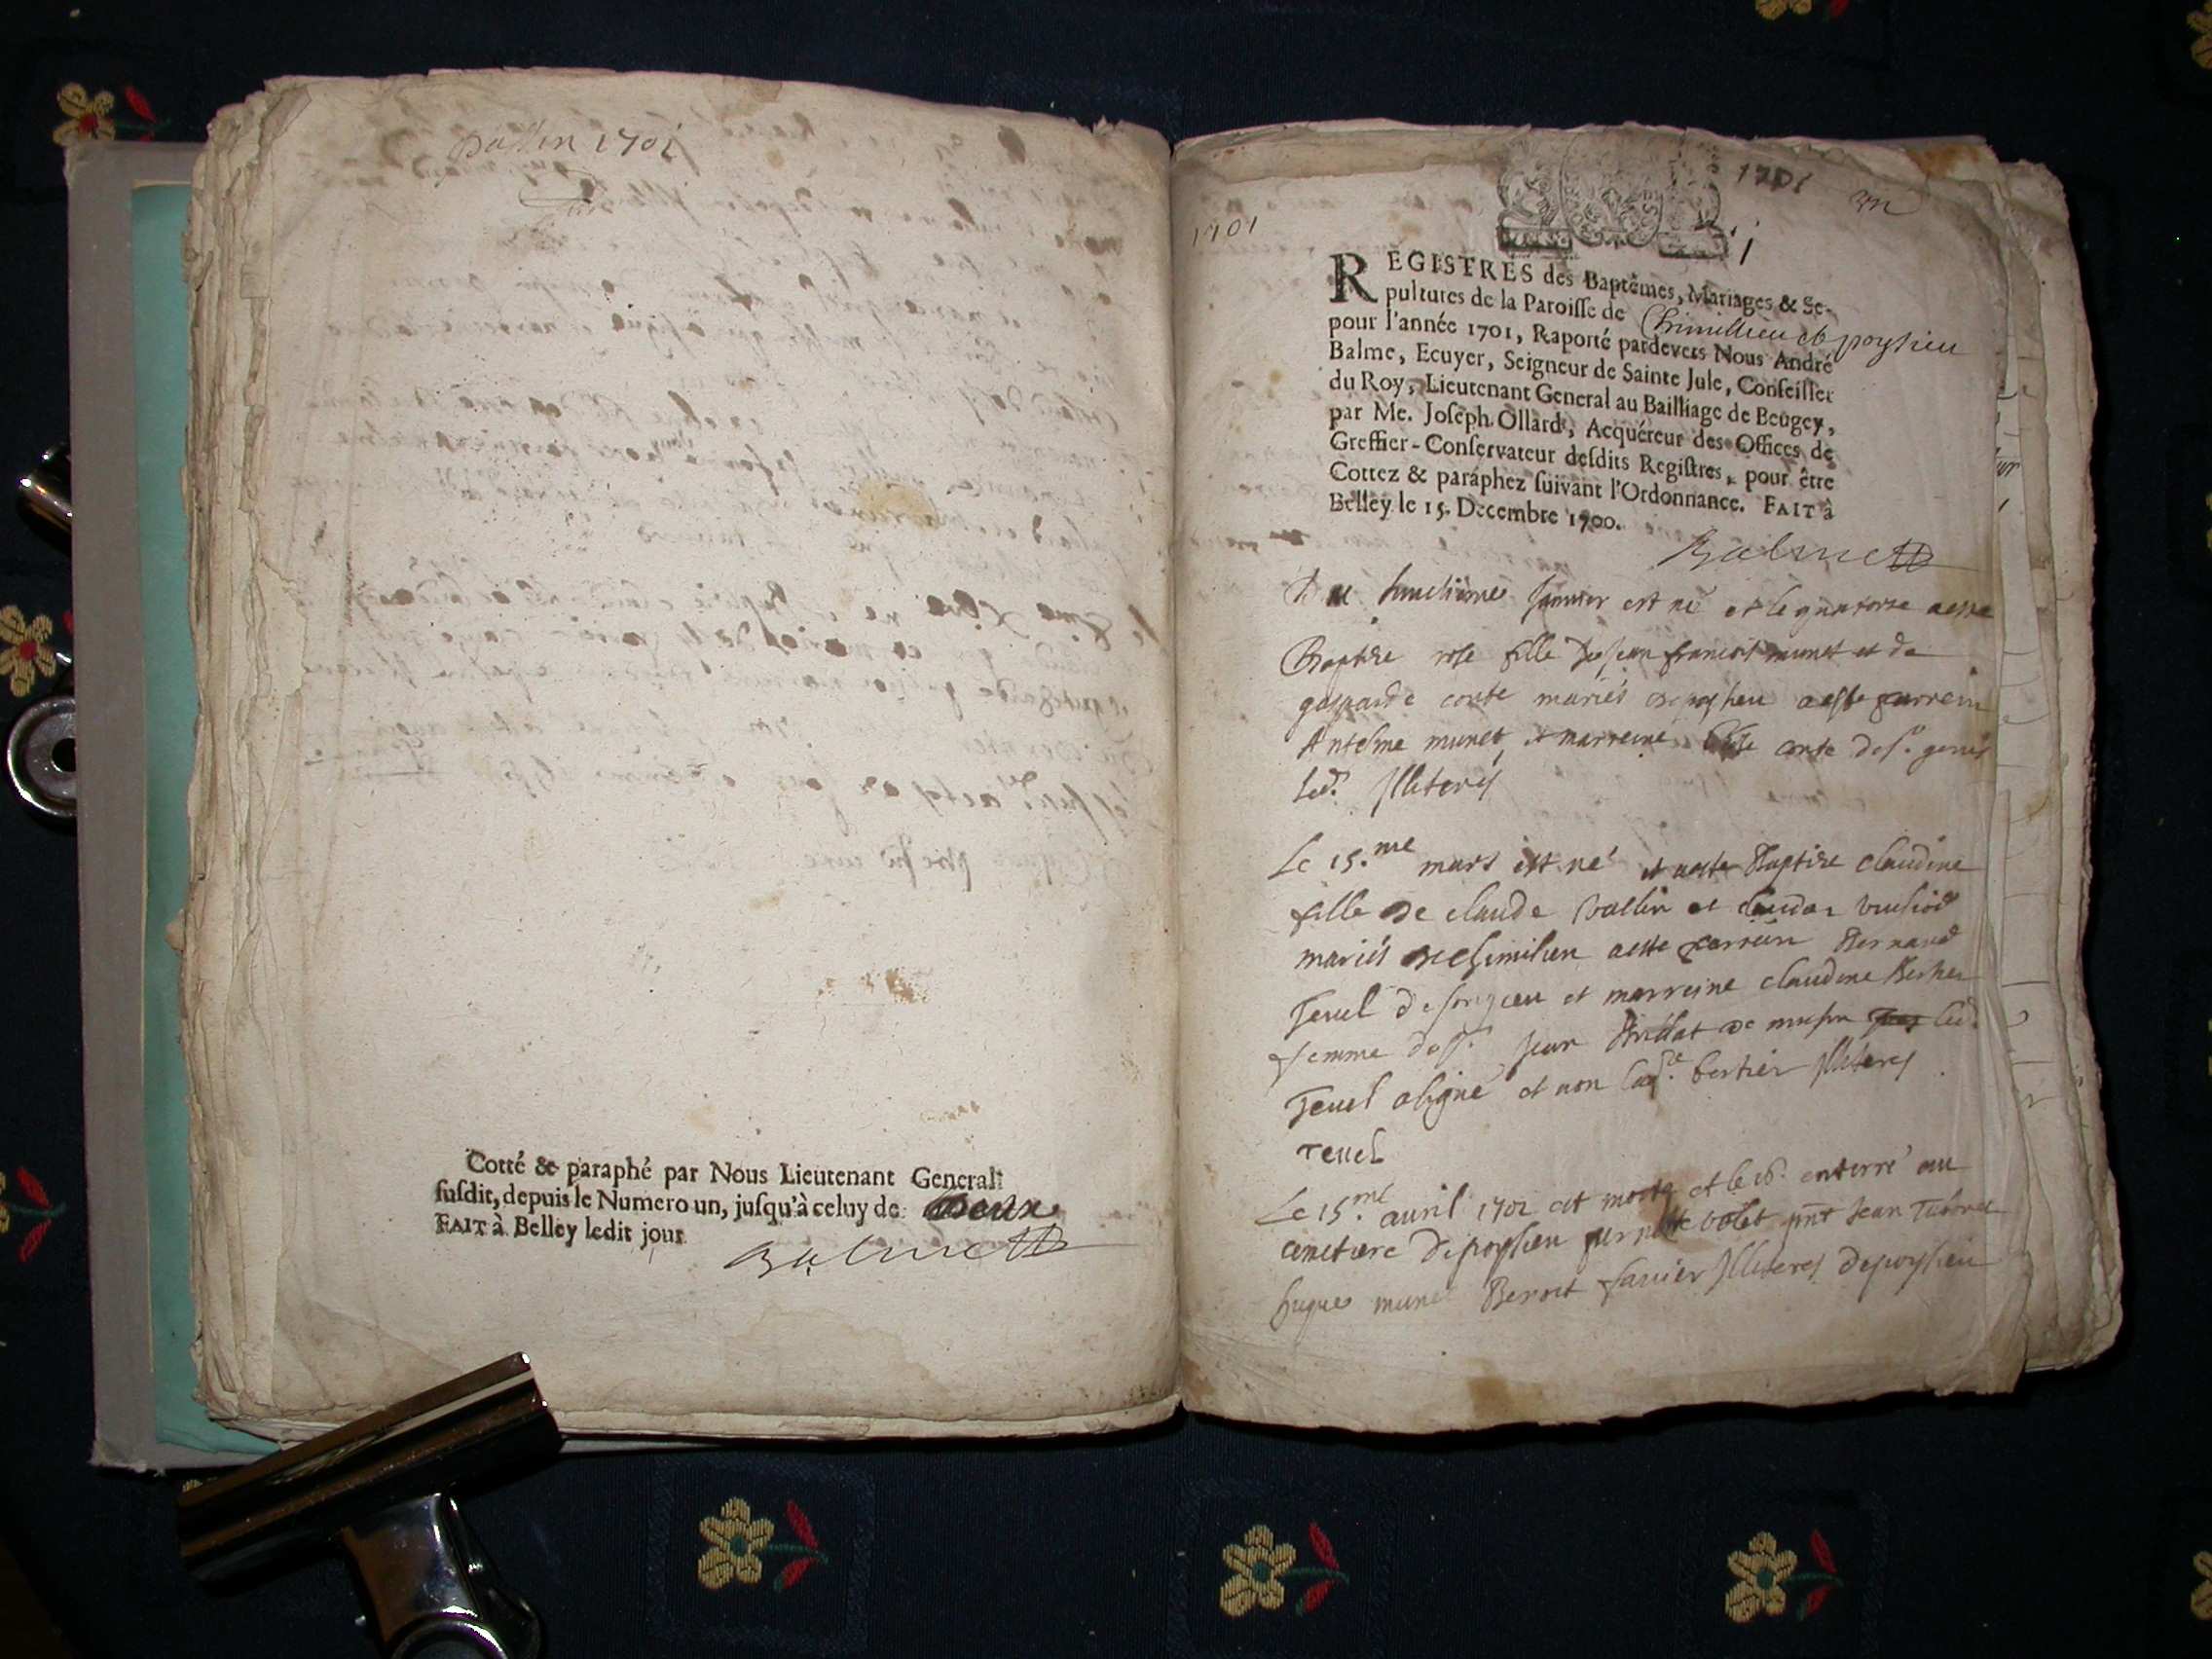 1701
Cotté & paraphé par Nous Lieutenant General
susdit, depuis le Numero un, jusqu'à celuy de Deux
FAIT à Belley ledit jour
Balme
1701
1701
REGISTRES des Baptêmes, Mariages & Se-
pultures de la Paroisse de Chimillieu et poysieu
pour l'année 1701, Raporté pardevers Nous André
Balme, Ecuyer, Seigneur de Sainte Jule, Conseiller
du Roy, Lieutenant General au Bailliage de Beugey,
par Me. Joseph Ollard, Acquéreur des Offices de
Greffier-Conservateur desdits Registres, pour être
Cottez & paráphez suivant l'Ordonnance. FAIT à
Belley le 15. Decembre 1700.
Balme
Janvier est né et le quatorze a esté
Baptisé rose fille de Jean francois munet et de
gasparde conte mariés de poysieu a esté parrein
Antelme munet et marreine conte de st. genis
led. Illiterés
Le 15.me mars est né et a esté Baptisé claudine
fille de claude vallin et
mariés de Chimilieu a esté parrein Bernard
Tevel de et marreine claudine Berthier
femme de Jean de led.
Tevel a signé et non lad. bertier Illiterés
Tevel
Le 15.me avril 1701 est morte et le 16. enterré au
cimetiere de poysieu pernette volet pnt Jean
hugues munet Benoit favier Illiteres de poysieu